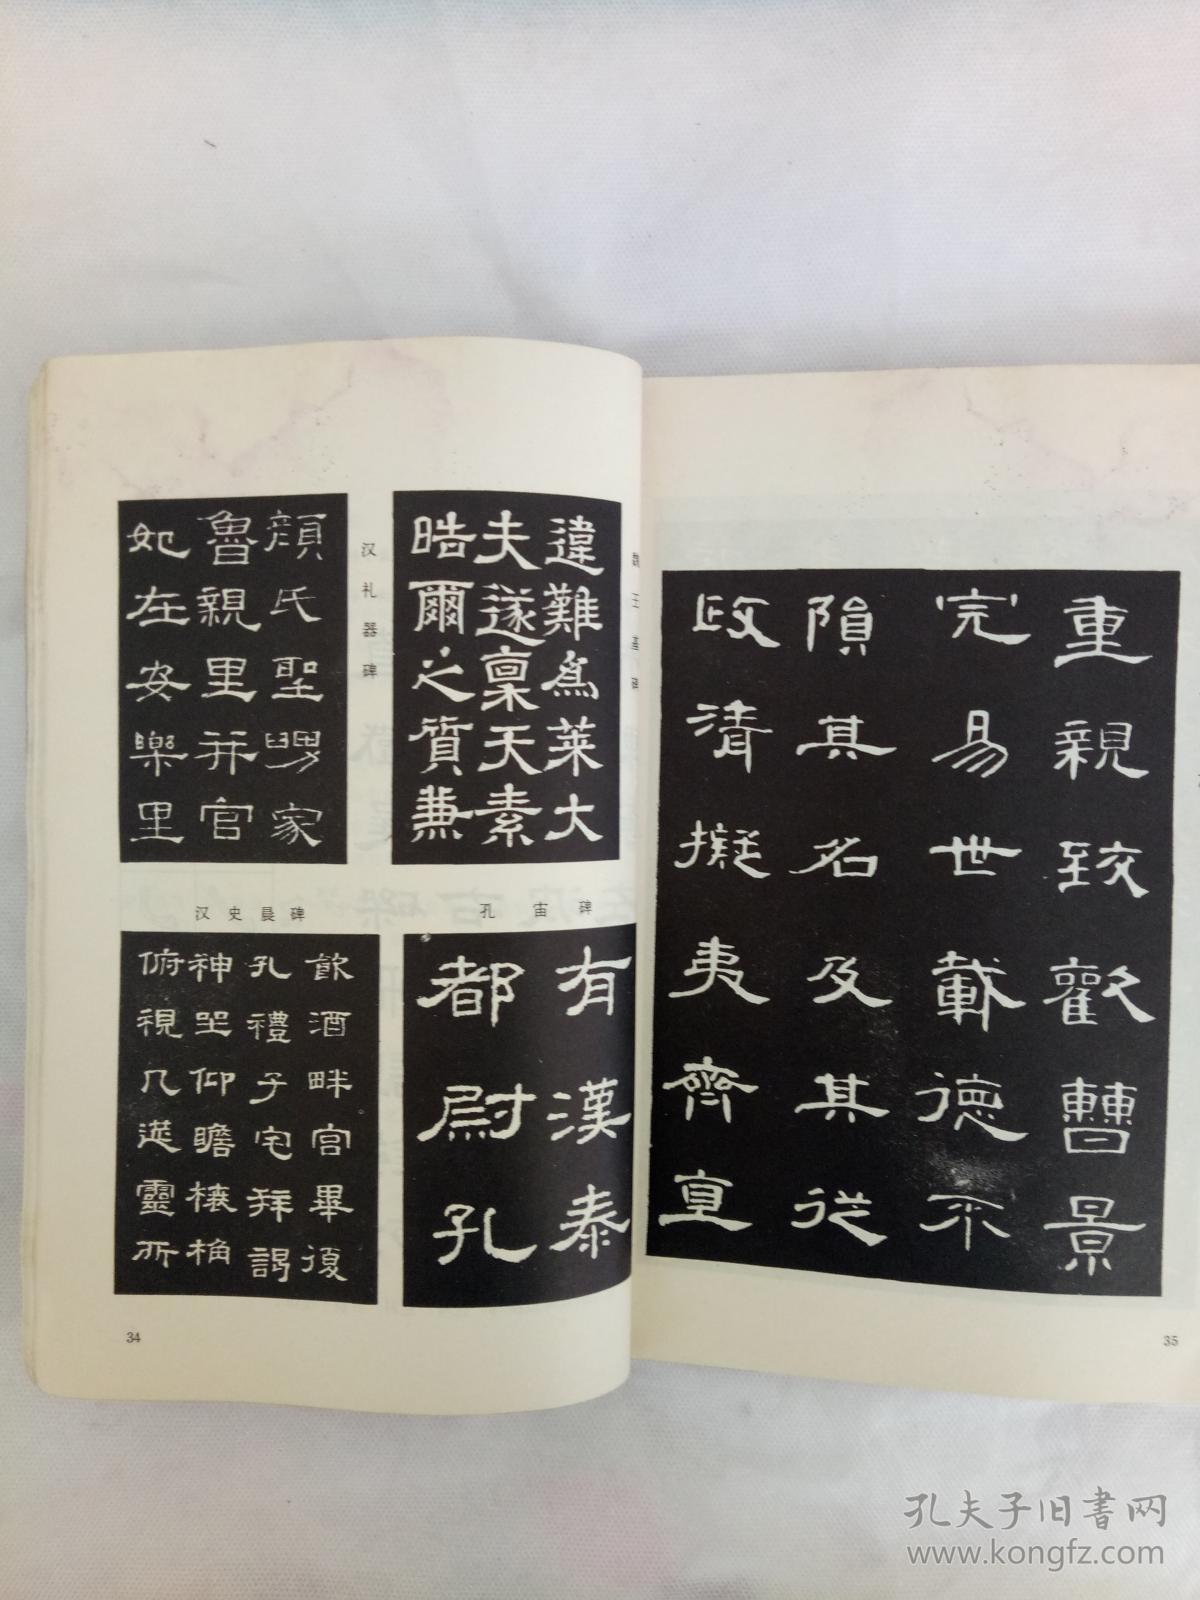 魏王基碑
違難爲萊大
夫遂稟天素
皓爾之質兼
汉礼器碑
顔氏聖舅家
魯親里并官
妃在安樂里
孔宙碑
有漢泰
都尉孔
汉史晨碑
飲酒畔宫畢復
孔禮子宅拜謁
神坐仰瞻榱桷
俯視几筵靈所
34
重親致歡曹景
完易世載德不
隕其名及其從
政清擬夷齊直
35
孔夫子旧书网
www.kongfz.com